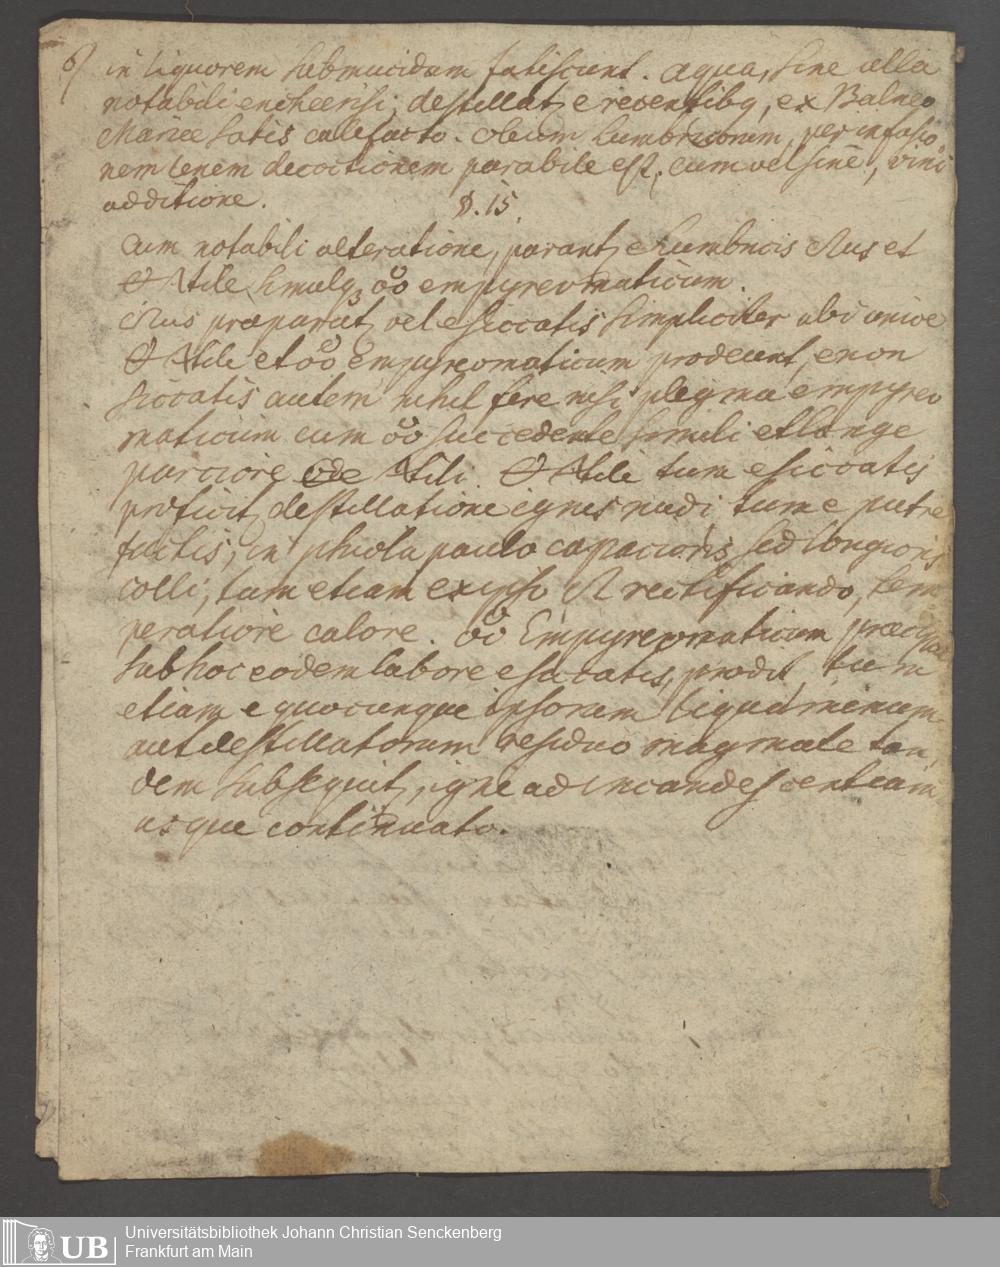 6)
in liquorem submucidum fatiscunt. aqua, sine ulla
notabili encheirisi, destillat, e recentibq, ex Balneo
Mariae satis calefacto. Oleum Lumbricorum, per infusio
nem lenem decoctionem parabile est, cum vel sine, vini
additione.
§. 15.
Cum notabili alteratione, parant, e Lumbricis et
simulq empyreumaticum.
praeparat, vel e siccatis simpliciter ubi
et empyreumaticum prodeunt, e non
siccatis autem nihil fere nisi plegma empyreu
maticum cum succedente simili et longe
parciore tum e siccatis
proficit, destillatione ignis nudi, tum e putre
factis, in phiola paulo capacioris, sed longioris
colli, tum etiam ex ipso rectificando, tem
peratiore calore. Empyreumaticum
sub hoc eodem labore e siccatis, prodit, tum
etiam e quocunque ipsorum liquaminum
aut destillatorum residuo magmate tan,
dem subsequit, igne ad incandescentiam
usque continuato.
UB
Universitätsbibliothek Johann Christian Senckenberg
Frankfurt am Main